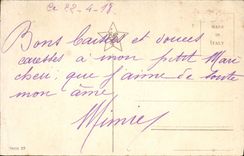 Ce 22-4-18.
MADE IN ITALY
Bons baisers et douces
caresses à mon petit Mari
cheri que j'aime de toute
mon âme